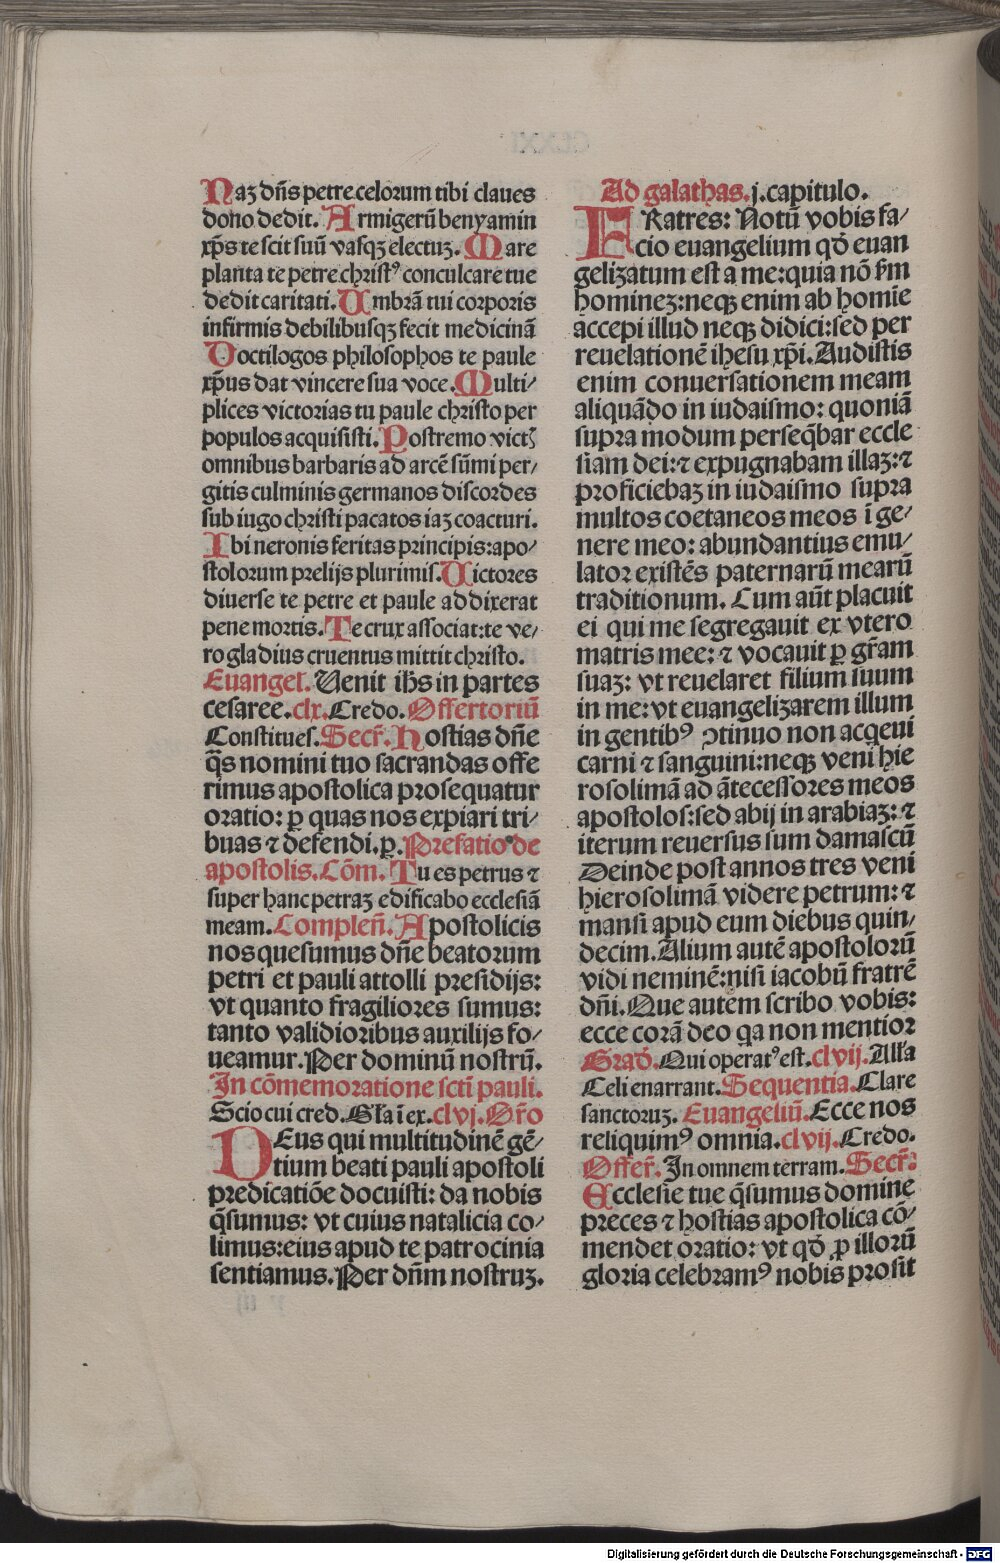 Naꝫ dñs petre celorum tibi claues
dono dedit. Armigerū benyamin
xp̄s te scit suū vasqꝫ electuꝫ. Mare
planta te petre christꝰ conculcare tue
dedit caritati. Umbrā tui corporis
infirmis debilibusqꝫ fecit medicinā
Doctilogos philosophos te paule
xp̄us dat vincere sua voce. Multi⸗
plices victorias tu paule christo per
populos acquisisti. Postremo vict̉
omnibus barbaris ad arcē sūmi per⸗
gitis culminis germanos discordes
sub iugo christi pacatos iaꝫ coacturi.
Ibi neronis feritas principis: apo⸗
stolorum prelijs plurimis. Uictores
diuerse te petre et paule addixerat
pene mortis. Te crux associat: te ve⸗
ro gladius cruentus mittit christo.
Euangel. Uenit ihs in partes
cesaree. clx. Credo. Offertoriū
Constitues. Secr̄. Hostias dn̄e
q̄s nomini tuo sacrandas offe
rimus apostolica prosequatur
oratio: ꝑ quas nos expiari tri⸗
buas ⁊ defendi. ꝑ. Prefatio de
apostolis. Cōm. Tu es petrus ⁊
super hanc petraꝫ edificabo ecclesiā
meam. Complen̄. Apostolicis
nos quesumus dn̄e beatorum
petri et pauli attolli presidijs:
vt quanto fragiliores sumus:
tanto validioribus auxilijs fo⸗
ueamur. Per dominū nostrū.
In cōmemoratione scti pauli.
Scio cui cred. Gl̄a i ex. clvj. Or̄o
DEus qui multitudinē gē⸗
tium beati pauli apostoli
predicatiōe docuisti: da nobis
q̄sumus: vt cuius natalicia co⸗
limus: eius apud te patrocinia
sentiamus. Per dn̄m nostruꝫ.
Ad galathas. j. capitulo.
FRatres: Notū vobis fa⸗
cio euangelium qđ euan
gelizatum est a me: quia nō fm
hominez: neqꝫ enim ab homīe
accepi illud neqꝫ didici: sed per
reuelationē ihesu xp̄i. Audistis
enim conuersationem meam
aliquādo in iudaismo: quoniā
supra modum perseq̄bar eccle
siam dei: ⁊ expugnabam illaꝫ: ⁊
proficiebaꝫ in iudaismo supra
multos coetaneos meos ī ge⸗
nere meo: abundantius emu⸗
lator existēs paternarū mearū
traditionum. Cum aūt placuit
ei qui me segregauit ex vtero
matris mee: ⁊ vocauit ꝑ gr̄am
suaꝫ: vt reuelaret filium suum
in me: vt euangelizarem illum
in gentibꝰ ↄtinuo non acqeui
carni ⁊ sanguini: neqꝫ veni hie
rosolimā ad ātecessores meos
apostolos: sed abij in arabiaꝫ: ⁊
iterum reuersus sum damascū
Deinde post annos tres veni
hierosolimā videre petrum: ⁊
mansi apud eum diebus quin⸗
decim. Alium autē apostolorū
vidi neminē: nisi iacobū fratrē
dn̄i. Que autem scribo vobis:
ecce corā deo qa non mentior
Građ. Qui operatꝰ est. clvij. All̄a
Celi enarrant. Sequentia. Clare
sanctoruꝫ. Euangeliū. Ecce nos
reliquimꝰ omnia. clvij. Credo.
Offer̄. In omnem terram. Secr̄:
Ecclesie tue q̄sumus domine
preces ⁊ hostias apostolica cō⸗
mendet oratio: vt qđ ꝓ illorū
gloria celebramꝰ nobis prosit
Digitalisierung gefördert durch die Deutsche Forschungsgemeinschaft - DFG